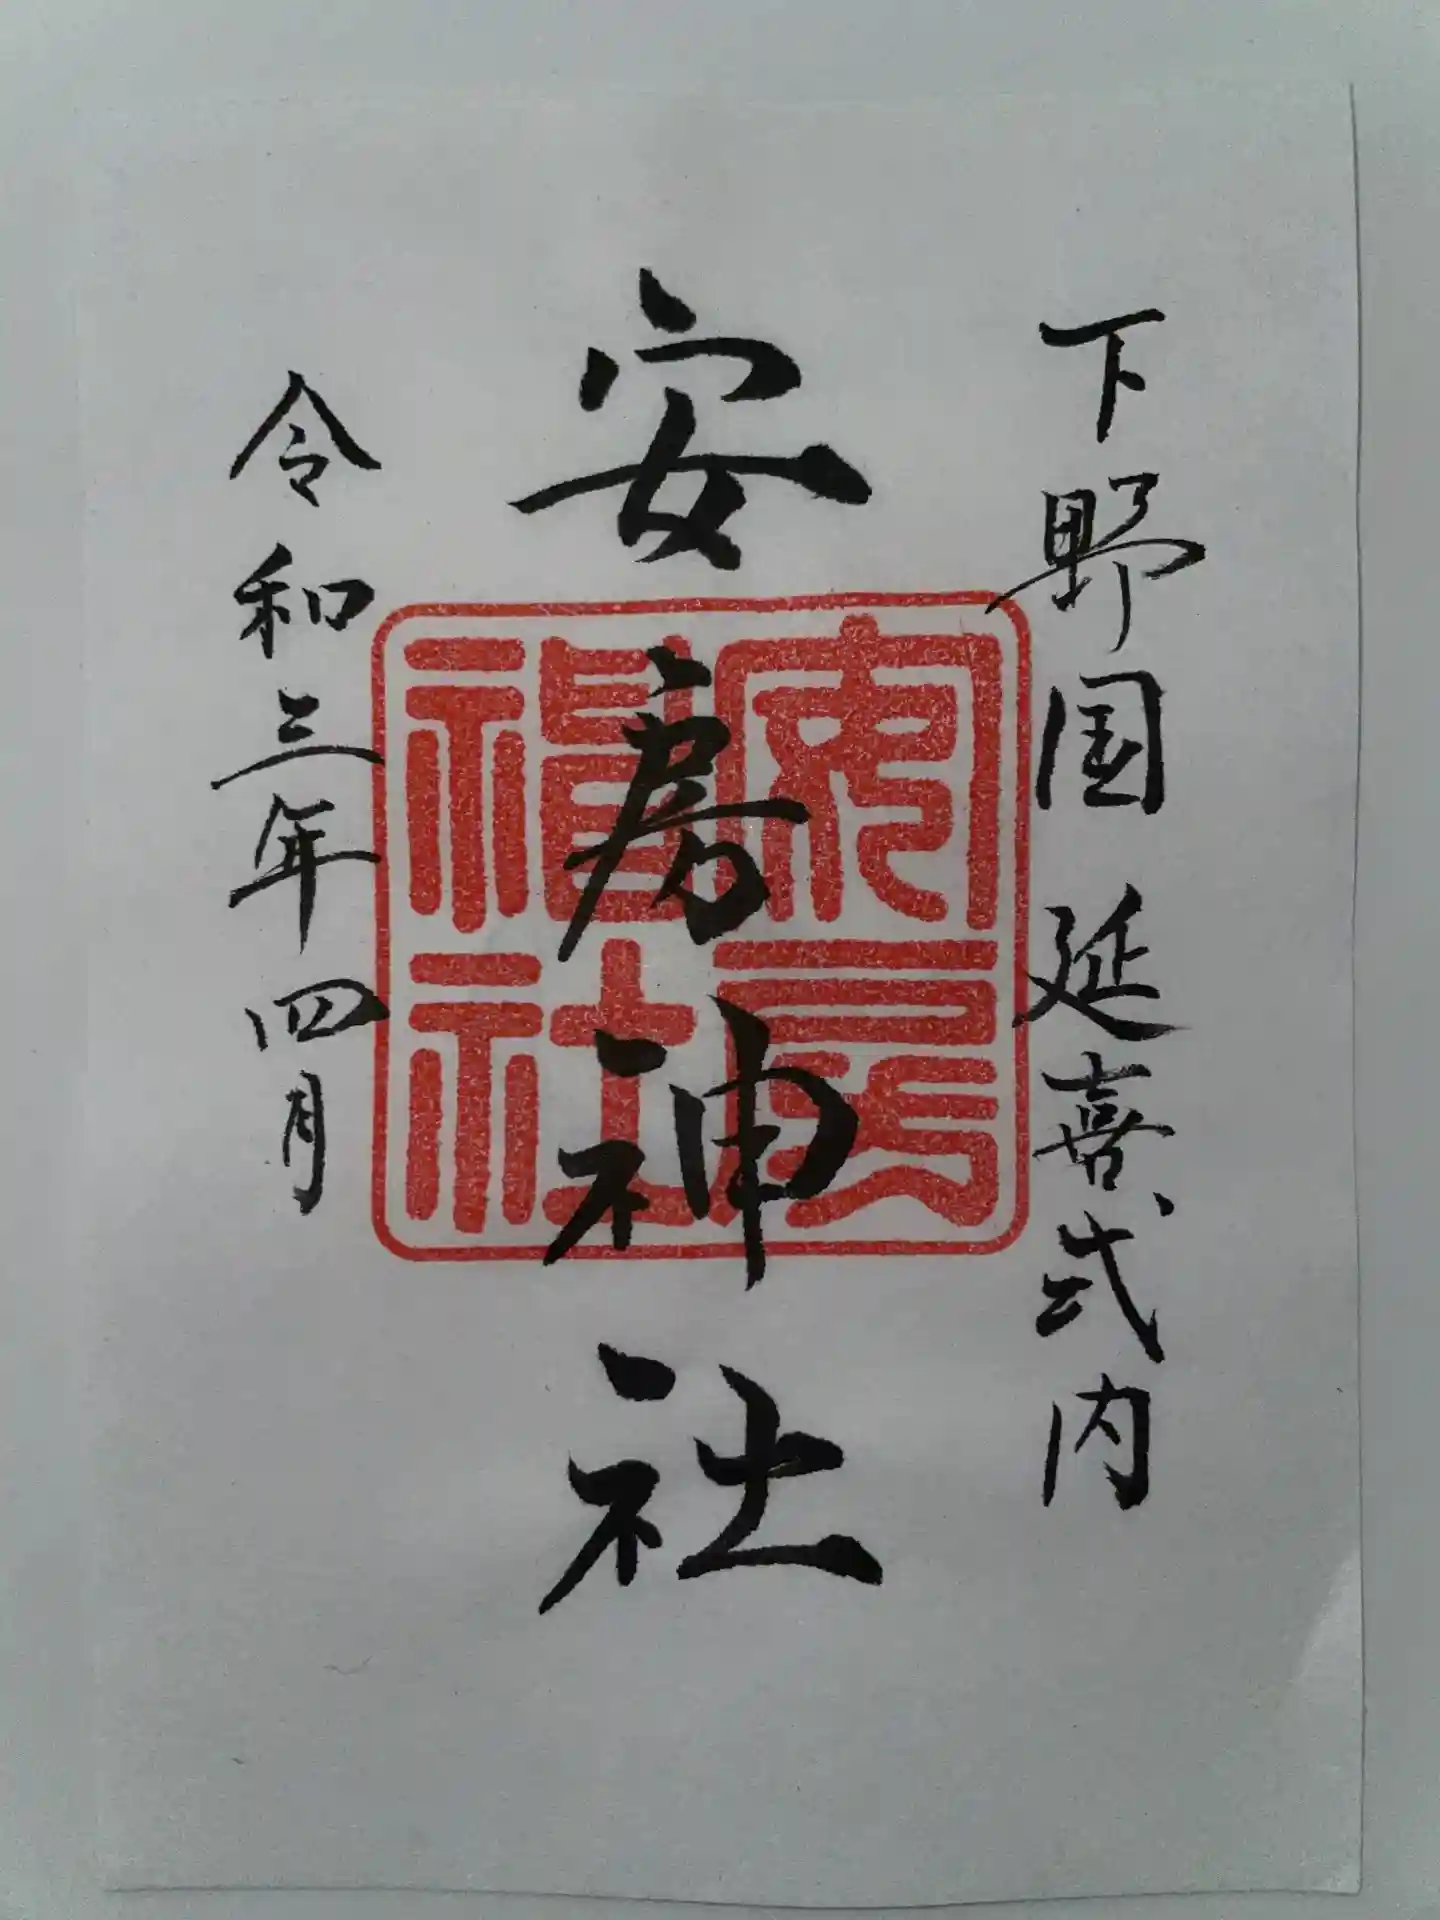 下野国 延喜式内
安房神社
令和三年四月
安房神社